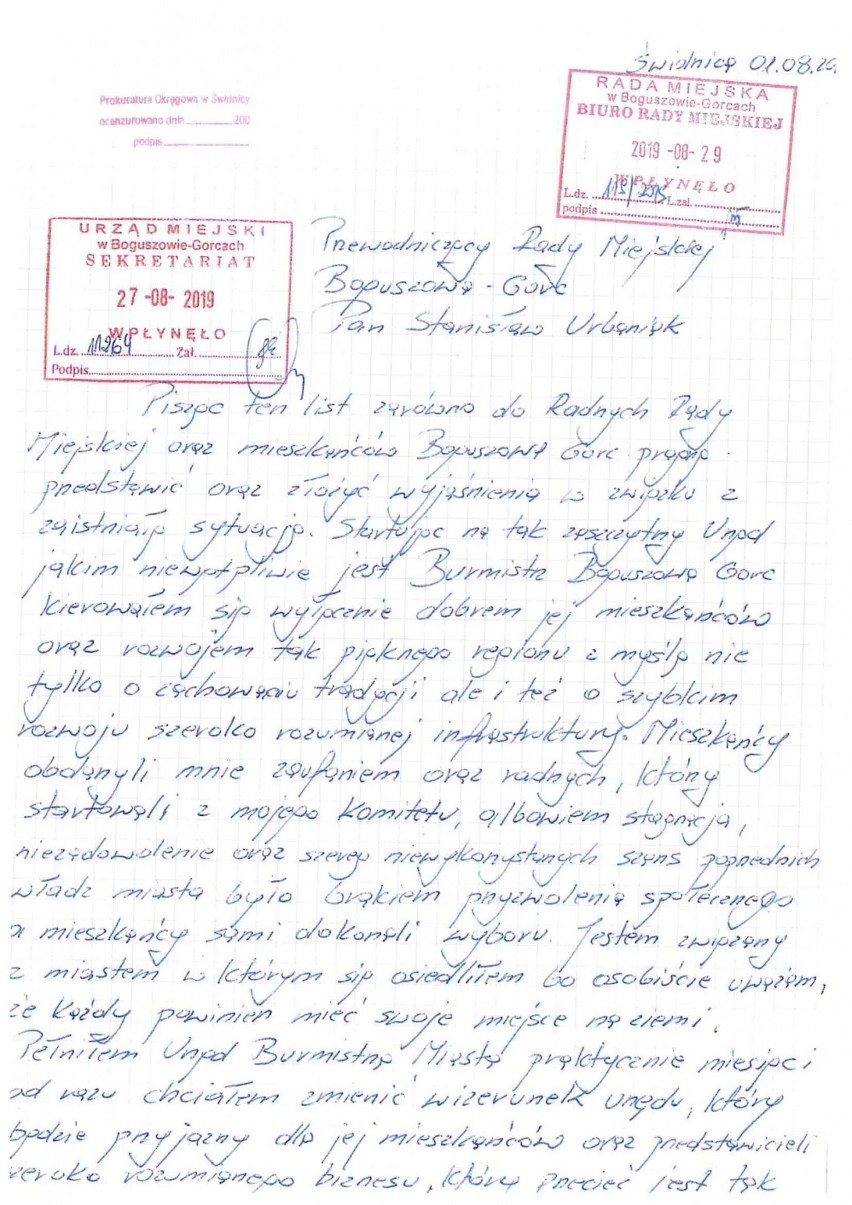 Świdnica 01.08.20
Prokuratura Okręgowa w Świdnicy
ocenzurowano dnia 200
podpis
RADA MIEJSKA
w Boguszowie-Gorcach
BIURO RADY MIEJSKIEJ
2019 -08- 29
WPŁYNĘŁO
L.dz. 115/2019 L.zał.
podpis
URZĄD MIEJSKI
w Boguszowie-Gorcach
SEKRETARIAT
27 -08- 2019
WPŁYNĘŁO
L.dz. 11264 Zał.
Podpis
Przewodniczący Rady Miejskiej
Boguszowa - Gorc
Pan Stanisław Urbaniak
Pisząc ten list zarówno do Radnych Rady
Miejskiej oraz mieszkańców Boguszowa Gorc pragnę
przedstawić oraz złożyć wyjaśnienia w związku z
zaistniałą sytuacją. Startując na tak zaszczytny Urząd
jakim niewątpliwie jest Burmistrz Boguszowa Gorc
kierowałem się wyłącznie dobrem jej mieszkańców
oraz rozwojem tak pięknego regionu z myślą nie
tylko o zachowaniu tradycji ale i też o szybkim
rozwoju szeroko rozumianej infrastruktury. Mieszkańcy
obdarzyli mnie zaufaniem oraz radnych, który
startowali z mojego Komitetu, albowiem stagnacja,
niezadowolenie oraz szereg niewykorzystanych szans poprzednich
władz miasta było brakiem przyzwolenia społecznego
a mieszkańcy sami dokonali wyboru. Jestem związany
z miastem w którym się osiedliłem bo osobiście uważam,
że każdy powinien mieć swoje miejsce na ziemi.
Pełniłem Urząd Burmistrza Miasta praktycznie miesiąc i
od razu chciałem zmienić wizerunek urzędu, który
będzie przyjazny dla jej mieszkańców oraz przedstawicieli
szeroko rozumianego biznesu, która przecież jest tak